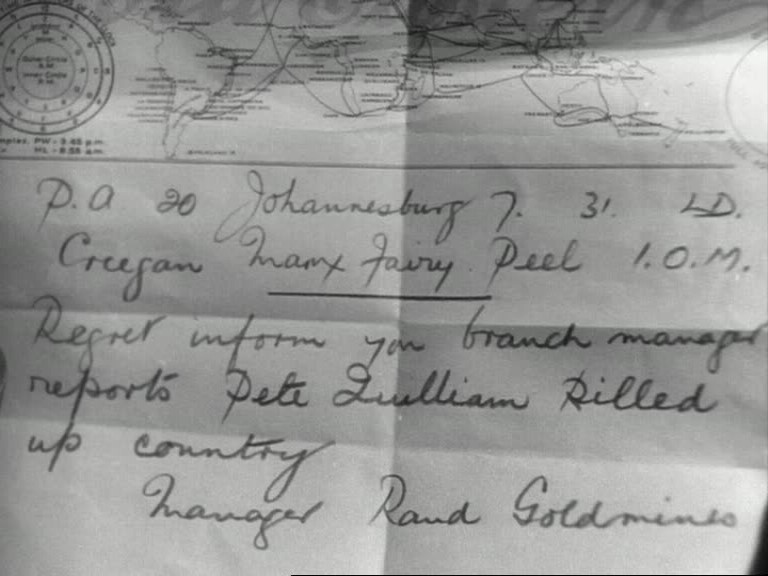 Outer Circle
Inner Circle
P.A 20 Johannesburg 7. 31. LD.
Creegan Manx Fairy. Peel I.O.M.
Regret inform you branch manager
reports Pete Quilliam Killed
up country
Manager Rand Goldmines